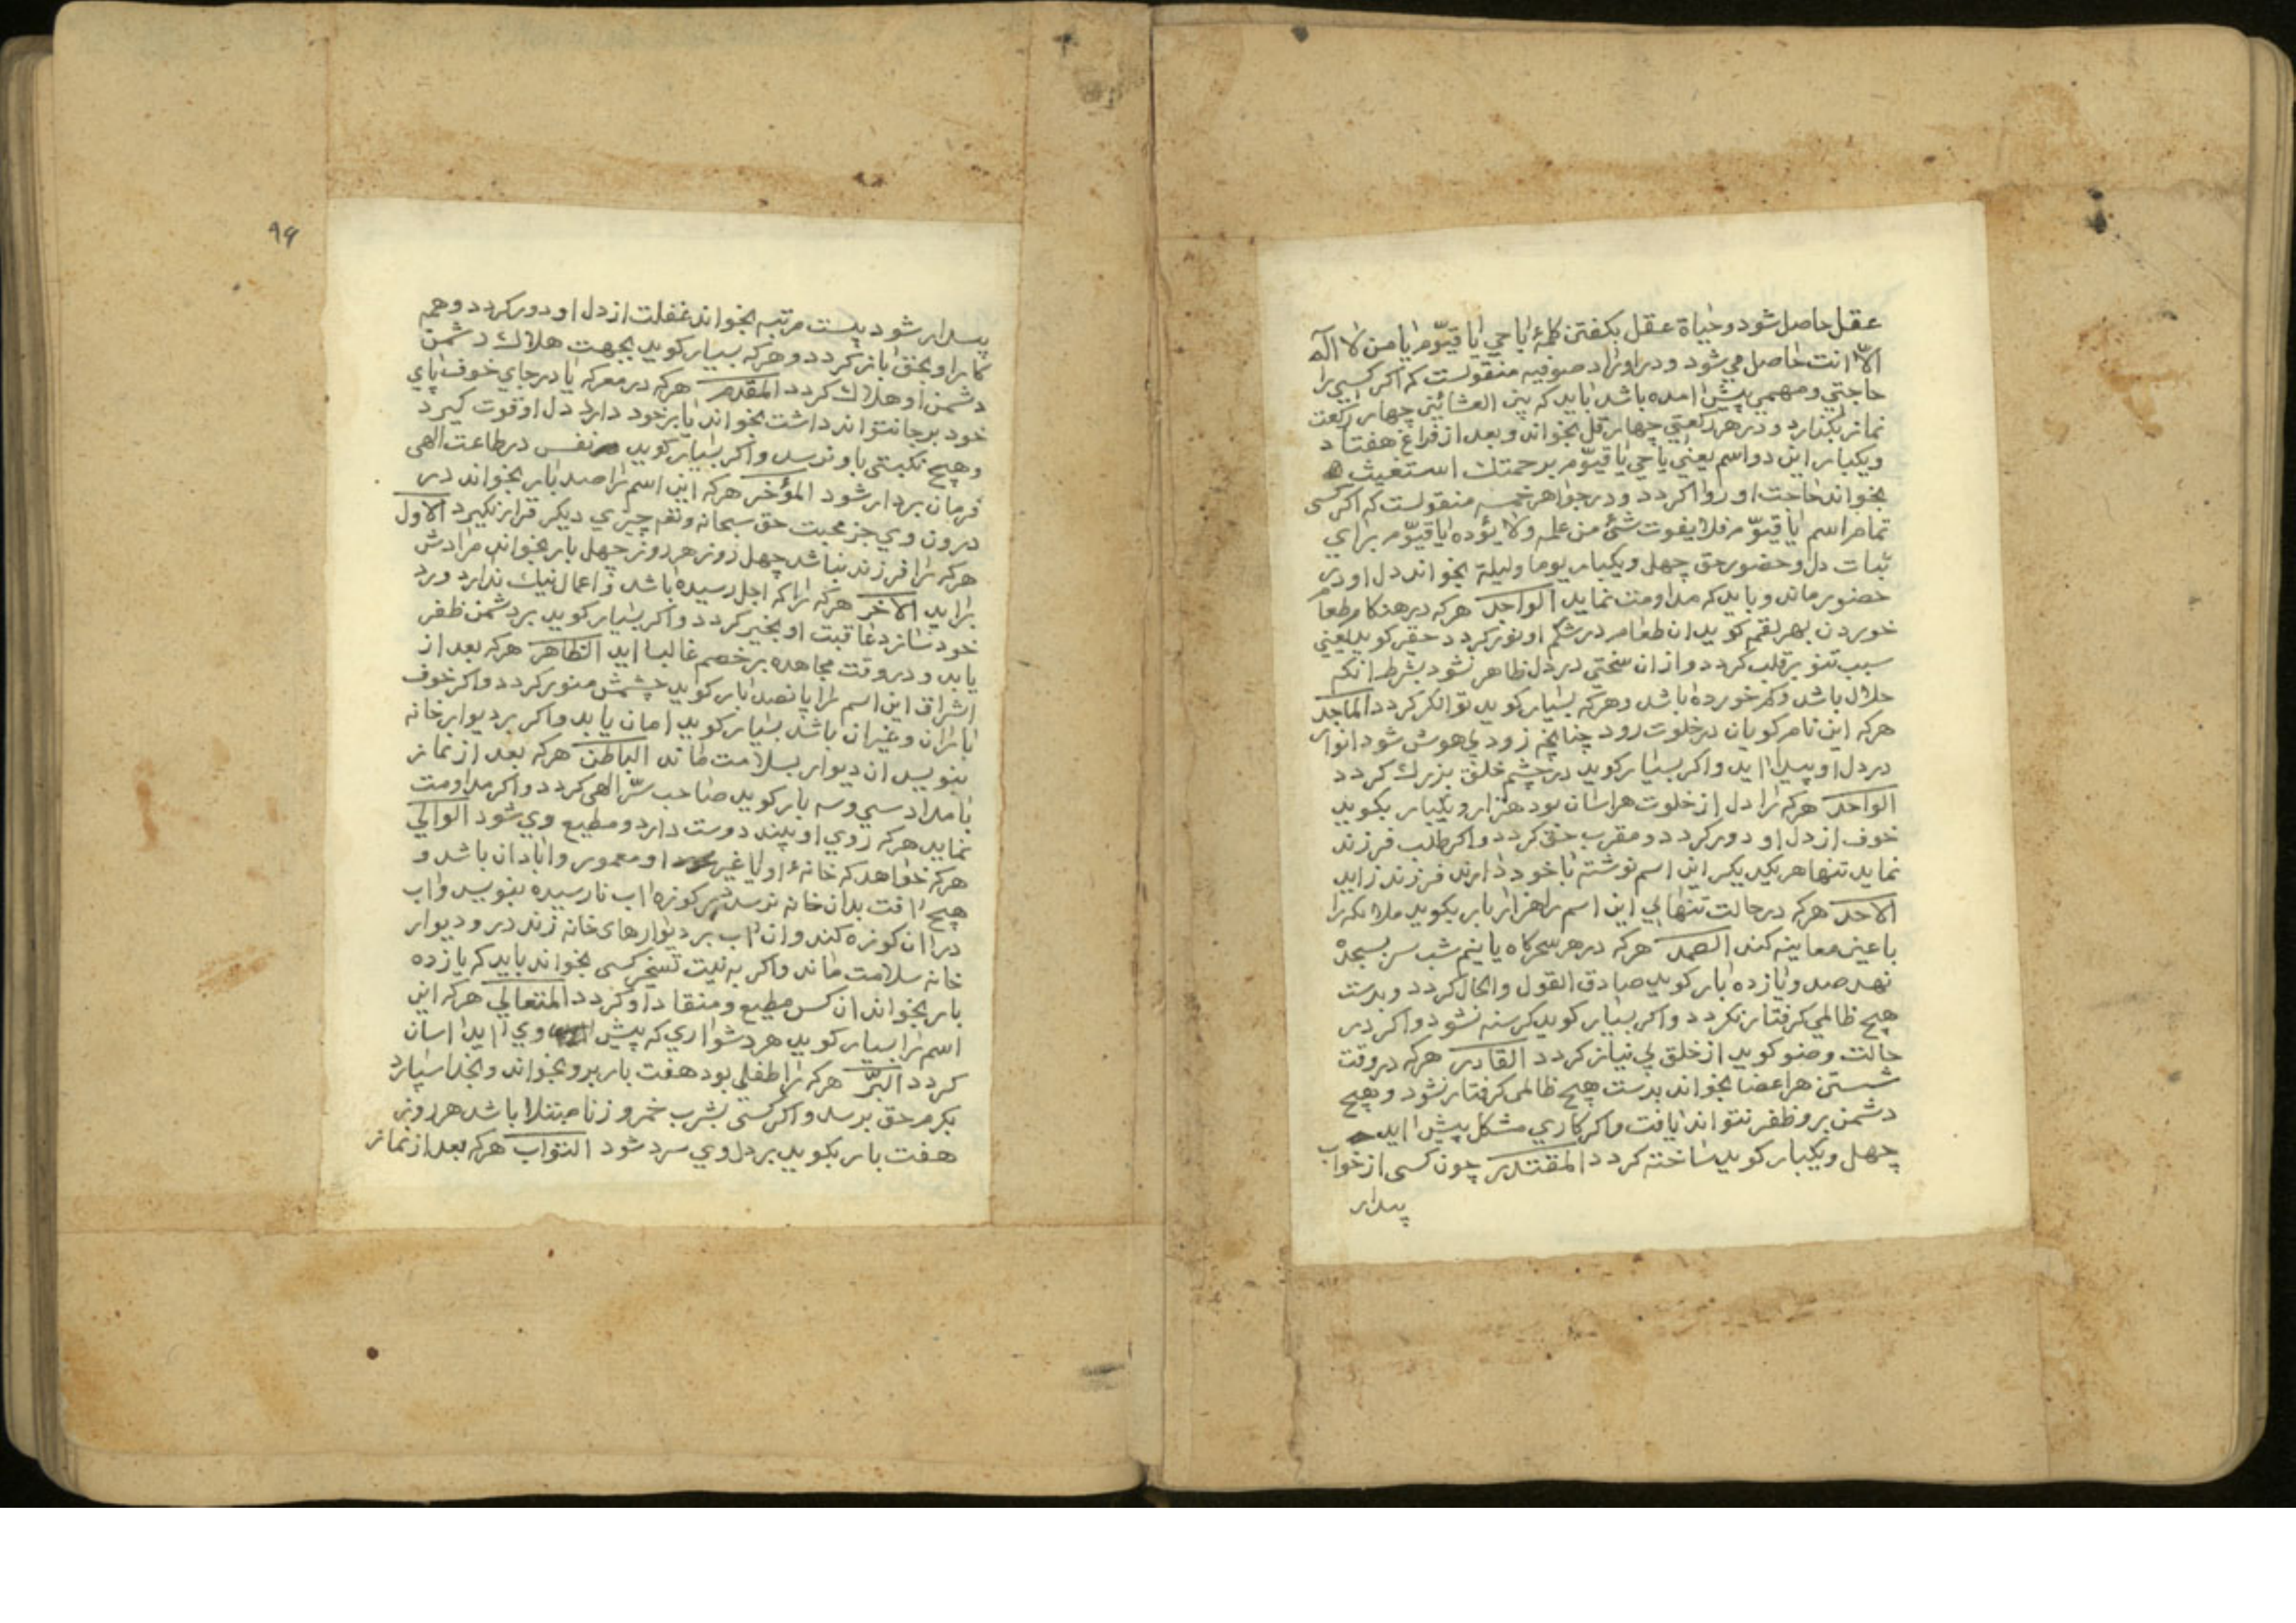 عقل حاصل شود و حیاة عقل بکفتن کلمۀ یا حي یا قیّوم یا من لا اله
الاّ انت حاصل می شود و در اوراد صوفیه منقولست که اکر کسی را
حاجتي و مهمي پیش امده باشد باید که بین العشائین چهار رکعت
نماز بکذارد و در هر رکعتي چهار قل بخواند و بعد از فراغ هفتاد
و یکبار این دو اسم یعني یا حي یا قیّوم برحمتك استغیث
بخواند حاجت او روا کردد و در جواهر خمسه منقولست که اکر کسی
تمام اسم یا قیّوم فلا یفوت شئ من علمه ولا یؤده یا قیّوم برای
ثبات دل و حضور حق چهل و یکبار یوما ولیلة بخواند دل او در
حضور ماند و باید که مداومت نماید الواجد هرکه در هنکام طعام
خوردن بهر لقمه کوید ان طعام در شکم او نور کردد حقیر کوید یعني
سبب تنویر قلب کردد و از ان سختی در دل ظاهر نشود بشرط انکه
حلال باشد و کم خورده باشد و هرکه بسیار کوید توانکر کردد الماجد
هرکه این نام کویان در خلوت رود چنانچه زود بی هوش شود انوار
در دل او پیدا اید و اکر بسیار کوید در چشم خلق بزرك کردد
الواحد هرکه را دل از خلوت هراسان بود هزار و یکبار بکوید
خوف از دل او دور کردد و مقرب حق کردد و اکر طلب فرزند
نماید تنها هر یکدیکر این اسم نوشته با خود دارند فرزند زاید
الاحد هرکه در حالت تنهایی این اسم را هزار بار بکوید ملائکه را
باعین معاینه کند الصمد هرکه در هر سحرکاه یا نیم شب سر بسجده
نهد صد و یازده بار کوید صادق القول والحال کردد و بدست
هیچ ظالمي کرفتار نکردد و اکر بسیار کوید کرسنه نشود و اکر در
حالت وضو کوید از خلق بي نیاز کردد القادر هرکه در وقت
شستن هر اعضا بخواند بدست هیچ ظالمی کرفتار نشود و هیچ
دشمن برو ظفر نتواند یافت و اکر کاري مشکل پیش اید
چهل و یکبار کوید ساخته کردد المقتدر چون کسی از خواب
بیدار
۹۹
بیدار شود بیست مرتبه بخواند غفلت از دل او دور کردد و همه
کار او بحق باز کردد و هرکه بسیار کوید بجهت هلاك دشمن
دشمن او هلاك کردد المقدم هرکه در معرکه یا در جاي خوف پای
خود بر جا نتواند داشت بخواند یا بر خود دارد دل او قوت کیرد
و هیچ نکبتی باو نرسد و اکر بسیار کوید نفس در طاعت الهی
فرمان بردار شود المؤخر هرکه این اسم را صد بار بخواند در
درون وي جز محبت حق سبحانه وتعم چیزي دیکر قرار نکیرد الاول
هرکه را فرزند نباشد چهل روز هر روز چهل بار بخواند مرادش
براید الاخر هرکه را که اجل رسیده باشد و اعمال نیك ندارد ورد
خود سازد عاقبت او بخیر کردد و اکر بسیار کوید بر دشمن ظفر
یابد و در وقت مجاهده بر خصم غالب اید الظاهر هرکه بعد از
اشراق این اسم را پانصد بار کوید چشمش منور کردد و اکر خوف
باران و غیر ان باشد بسیار کوید امان یابد و اکر بر دیوار خانه
بنویسد ان دیوار بسلامت ماند الباطن هرکه بعد از نماز
بامداد سي وسه بار کوید صاحب سرّ الهی کردد و اکر مداومت
نماید هرکه روي او بیند دوست دارد و مطیع وي شود الوالي
هرکه خواهد که خانۀ او یا غیر او معمور و ابادان باشد و
هیچ افت بدان خانه نرسد بر کوزه اب نارسیده بنویسد و اب
در ان کوزه کند و ان اب بر دیوارهای خانه زند در و دیوار
خانه سلامت ماند و اکر به نیت تسخیر کسی بخواند باید که یازده
بار بخواند ان کس مطیع و منقاد او کردد المتعالي هرکه این
اسم را بسیار کوید هر دشواري که پیش وي اید اسان
کردد البرّ هرکه را طفلی بود هفت بار برو بخواند و بخدا سپارد
بکرم حق برسد و اکر کسی بشرب خمر و زنا مبتلا باشد هر روز
هفت بار بکوید بر دل وي سرد شود التواب هرکه بعد از نماز